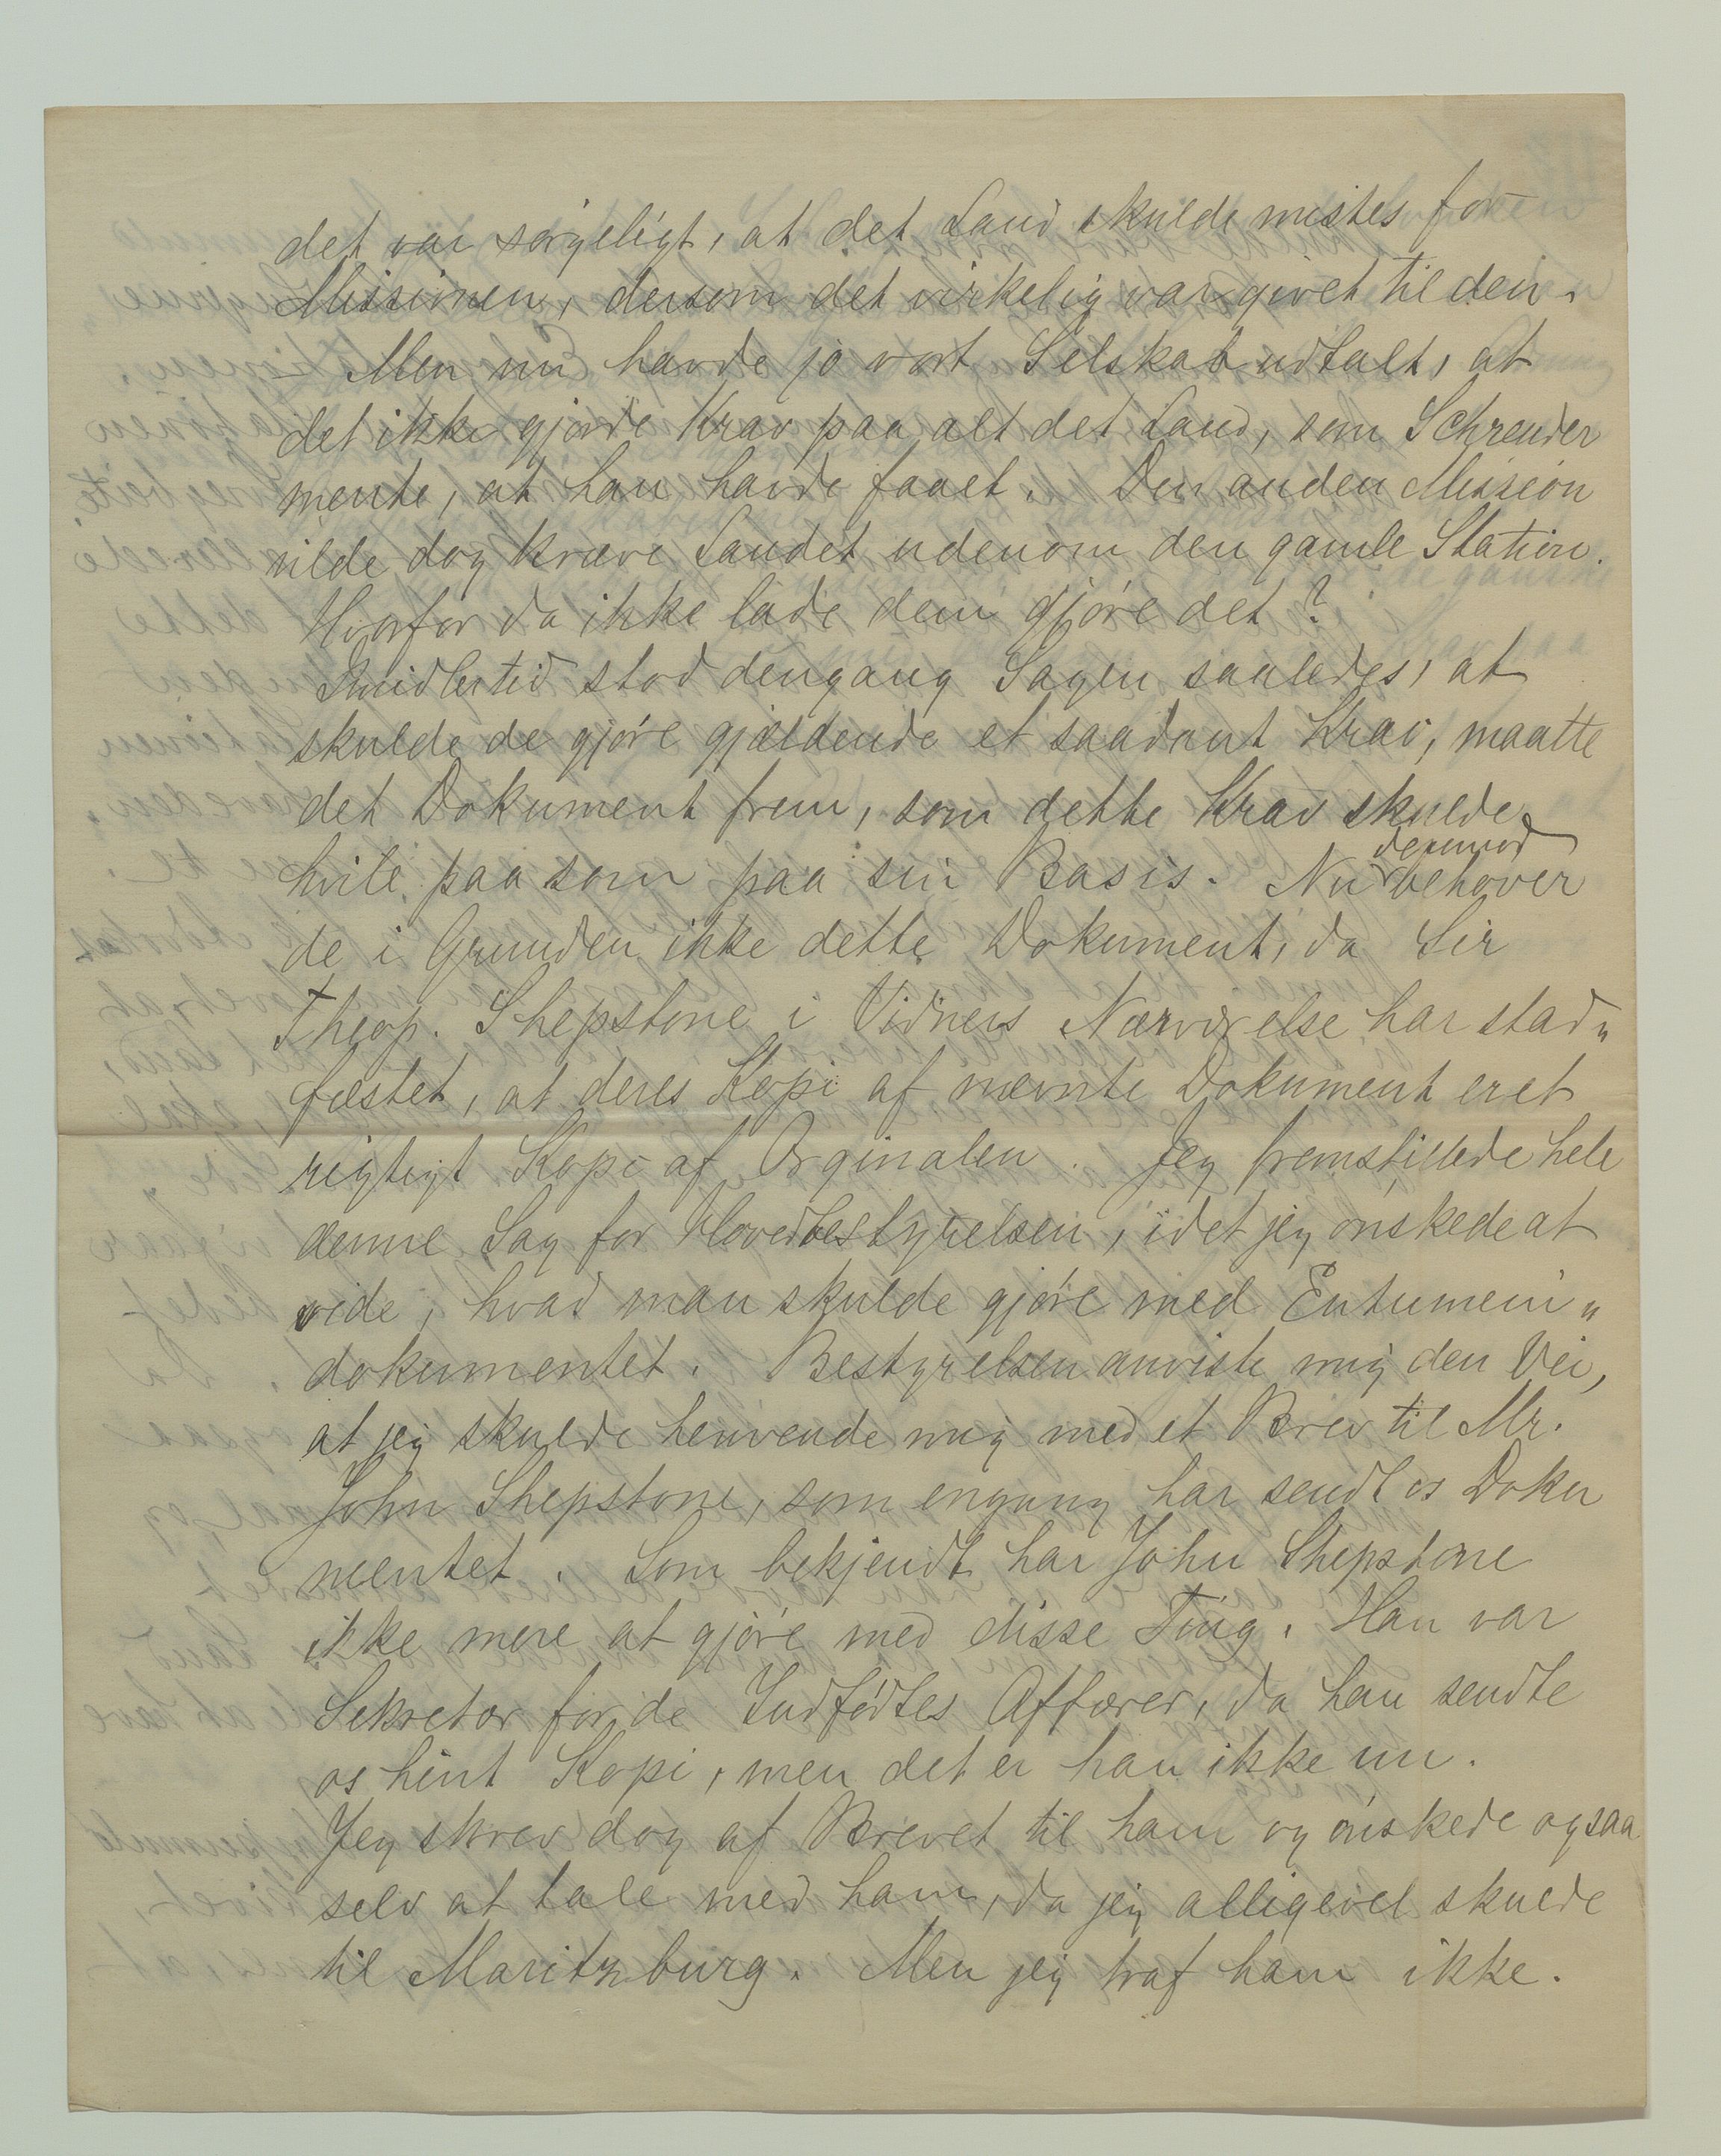 det var sørgeligt, at det Land skulde mistes for
Missionen, dersom det virkelig var givet til den.
– Men nu havde jo vort Selskab udtalt, at
det ikke gjorde Krav paa alt det Land, som Schreuder
mente, at han havde faaet. Den anden Mission
vilde dog kræve Landet udenom den gamle Station.
Hvorfor da ikke lade dem gjøre det?
Imidlertid stod dengang Sagen saaledes, at
skulde de gjøre gjældende et saadant Krav, maatte
det Dokument frem, som dette Krav skulde
hvile paa som paa sin Basis. Nu derimod behøver
de i Grunden ikke dette Dokument, da Sir
Theop. Shepstone i Vidners Nærværelse har stad„
fæstet, at deres Kopi af nævnte Dokument er et
rigtigt Kopi af Orginalen. Jeg fremstillede hele
denne Sag for Hovedbestyrelsen, idet jeg ønskede at
vide, hvad man skulde gjøre med Entumeni„
dokumentet. Bestyrelsen anviste mig den Vei,
at jeg skulde henvende mig med et Brev til Mr.
John Shepstone, som engang har sendt os Doku
mentet. Som bekjendt har John Shepstone
ikke mere at gjøre med disse Ting. Han var
Sekretær for de Indfødtes Affærer, da han sendte
os hint Kopi, men det er han ikke nu.
Jeg skrev dog af Brevet til ham og ønskede ogsaa
selv at tale med ham, da jeg alligevel skulde
til Maritzburg. Men jeg traf ham ikke.